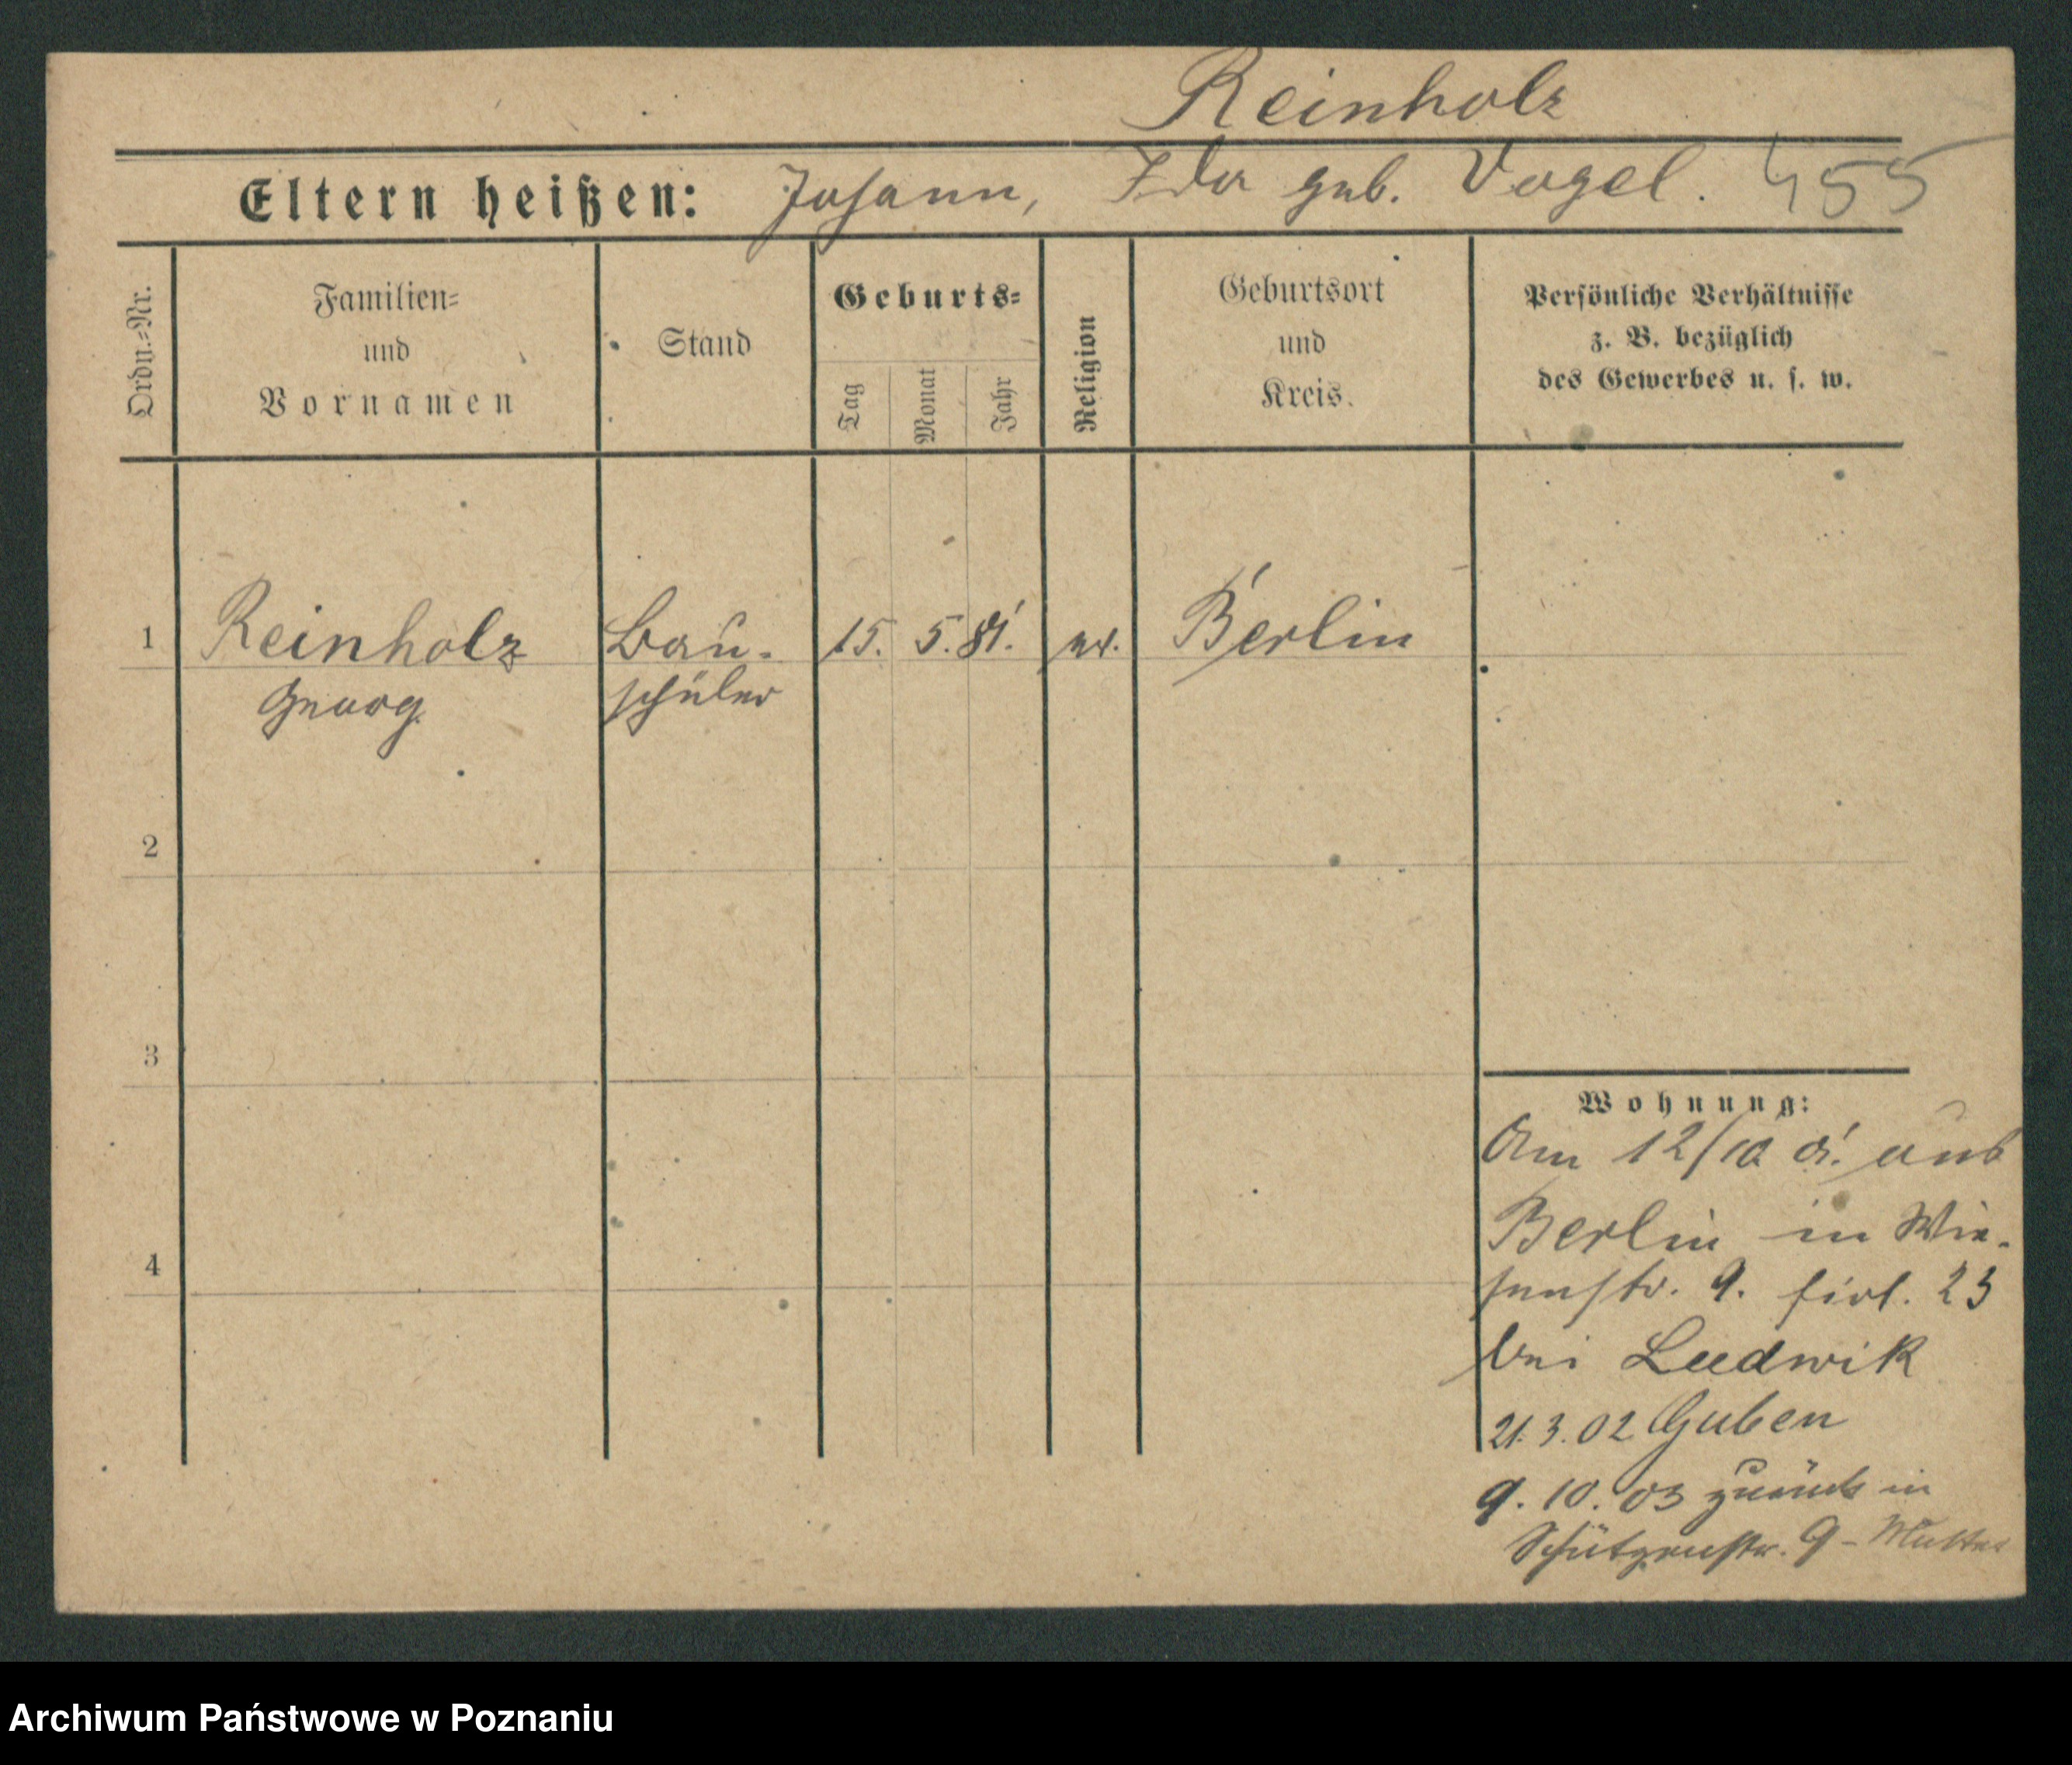 Reinholz
Eltern heißen: Johann, Ida geb. Vogel. 455
Ordn.=Nr.
Familien=
und
Vornamen
Stand
Geburts=
Tag
Monat
Jahr
Religion
Geburtsort
und
Kreis.
Persönliche Verhältnisse
z. B. bezüglich
des Gewerbes u. s. w.
1 Reinholz Bau- 15. 5. 81. ev. Berlin
Georg schüler
2
3
4
Wohnung:
Am 12/10 01. aus
Berlin in Wie-
senstr. 9. 23
bei Ludwik
21.3.02 Guben
9.10.03 zurück in
Schützenstr. 9 - Mutter
Archiwum Państwowe w Poznaniu